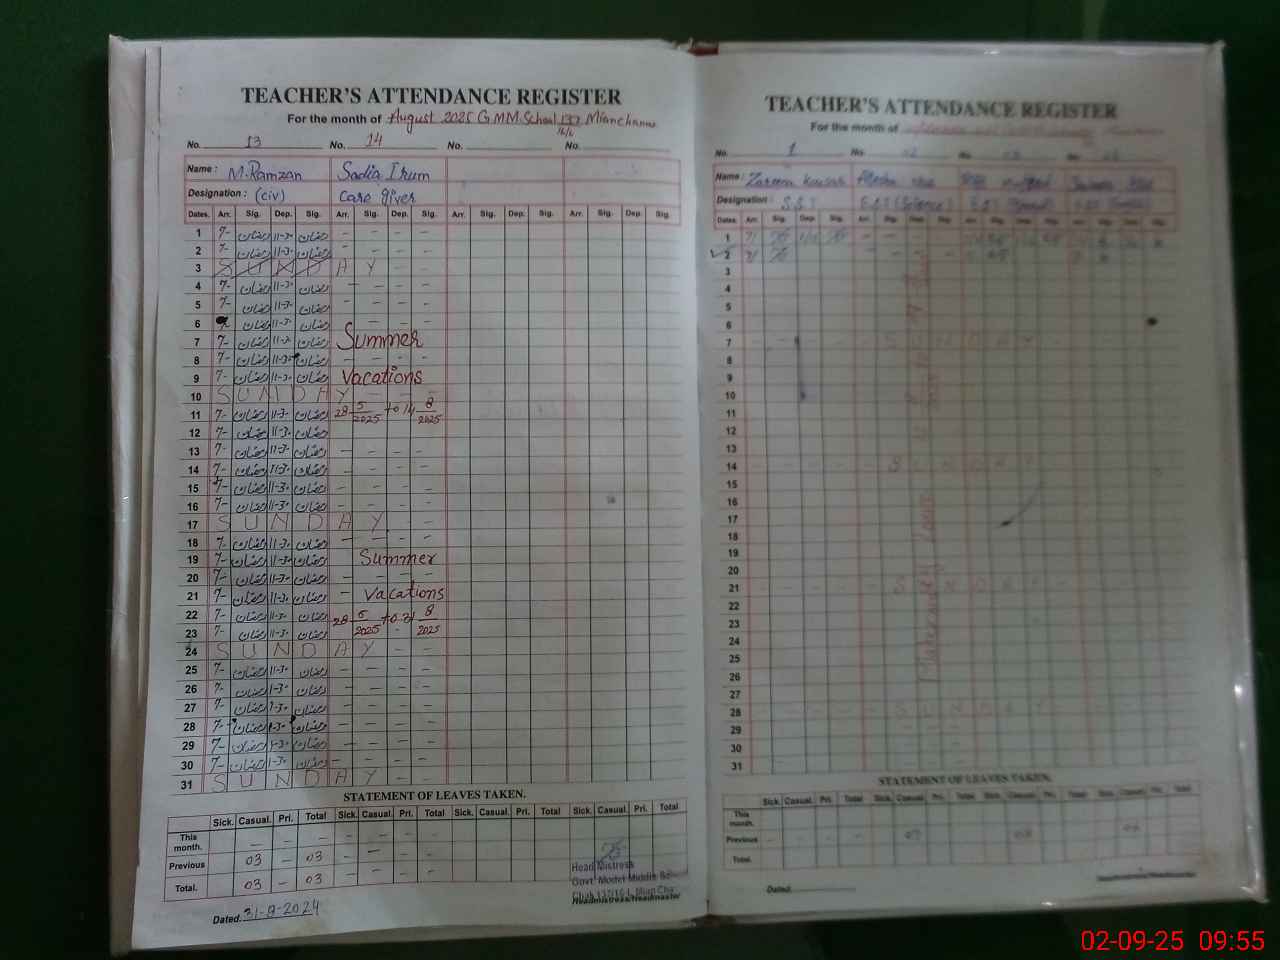 TEACHER'S ATTENDANCE REGISTER
For the month of August 2025 G.M.M.School 137 Mianchannu
16/L
No. 13 No. 14 No. No.
Name : M.Ramzan Sadia Irum
Designation : (civ) Care giver
Dates. Arr. Sig. Dep. Sig. Arr. Sig. Dep. Sig. Arr. Sig. Dep. Sig. Arr. Sig. Dep. Sig.
1 7- رمضان 11-30 رمضان - - - -
2 7- رمضان 11-30 رمضان - - - -
3 S U N D A Y - -
4 7- رمضان 11-30 رمضان - - - -
5 7- رمضان 11-30 رمضان - - - -
6 رمضان 11-30 رمضان - - - -
7 7- رمضان 11-30 رمضان Summer
8 7- رمضان 11-30 رمضان - - - -
9 7- رمضان 11-30 رمضان Vacations
10 S U N D A Y - -
11 7- رمضان 11-30 رمضان 28 5/2025 to 14 8/2025
12 7- رمضان 11-30 رمضان
13 7- رمضان 11-30 رمضان - - - -
14 7- رمضان 11-30 رمضان - - - -
15 7- رمضان 11-30 رمضان - - - -
16 7- رمضان 11-30 رمضان - - - -
17 S U N D A Y - -
18 7- رمضان 11-30 رمضان - - - -
19 7- رمضان 11-30 رمضان Summer
20 7- رمضان 11-30 رمضان - - - -
21 7- رمضان 11-30 رمضان - Vacations
22 7- رمضان 11-30 رمضان 28 5/2025 to 31 8/2025
23 7- رمضان 11-30 رمضان
24 S U N D A Y - -
25 7- رمضان 11-30 رمضان - - - -
26 7- رمضان 1-30 رمضان - - - -
27 7- رمضان 1-30 رمضان - - - -
28 7- رمضان 1-30 رمضان - - - -
29 7- رمضان 1-30 رمضان - - - -
30 7- رمضان 1-30 رمضان - - - -
31 S U N D A Y - -
STATEMENT OF LEAVES TAKEN.
Sick. Casual. Pri. Total Sick. Casual. Pri. Total Sick. Casual. Pri. Total Sick. Casual. Pri. Total
This month. - - - - - - -
Previous 03 - 03 - - - -
Total. 03 - 03 - - - -
Head Mistress
Govt. Model Middle Sc
Chak 137/16-L Mian Cha
Headmistress/Headmaster
Dated. 31-8-2024
TEACHER'S ATTENDANCE REGISTER
For the month of
No. 1 No. 02 No. 03 No.
Name : Zareena Kausar
Designation : S.S.T E.S.T (Science)
Dates. Arr. Sig.
1 7/
2 7/
3
4
5
6
7 S U N D A Y
8
9
10
11
12
13
14 S U N D A Y
15
16
17
18
19
20
21 S U N D A Y
22
23
24
25
26
27
28 S U N D A Y
29
30
31
Maternity Leave
STATEMENT OF LEAVES TAKEN.
Sick. Casual. Pri. Total Sick. Casual. Pri. Total Sick. Casual. Pri. Total Sick. Casual. Pri. Total
This month.
Previous
Total.
Dated.
Headmistress/Headmaster
02-09-25 09:55